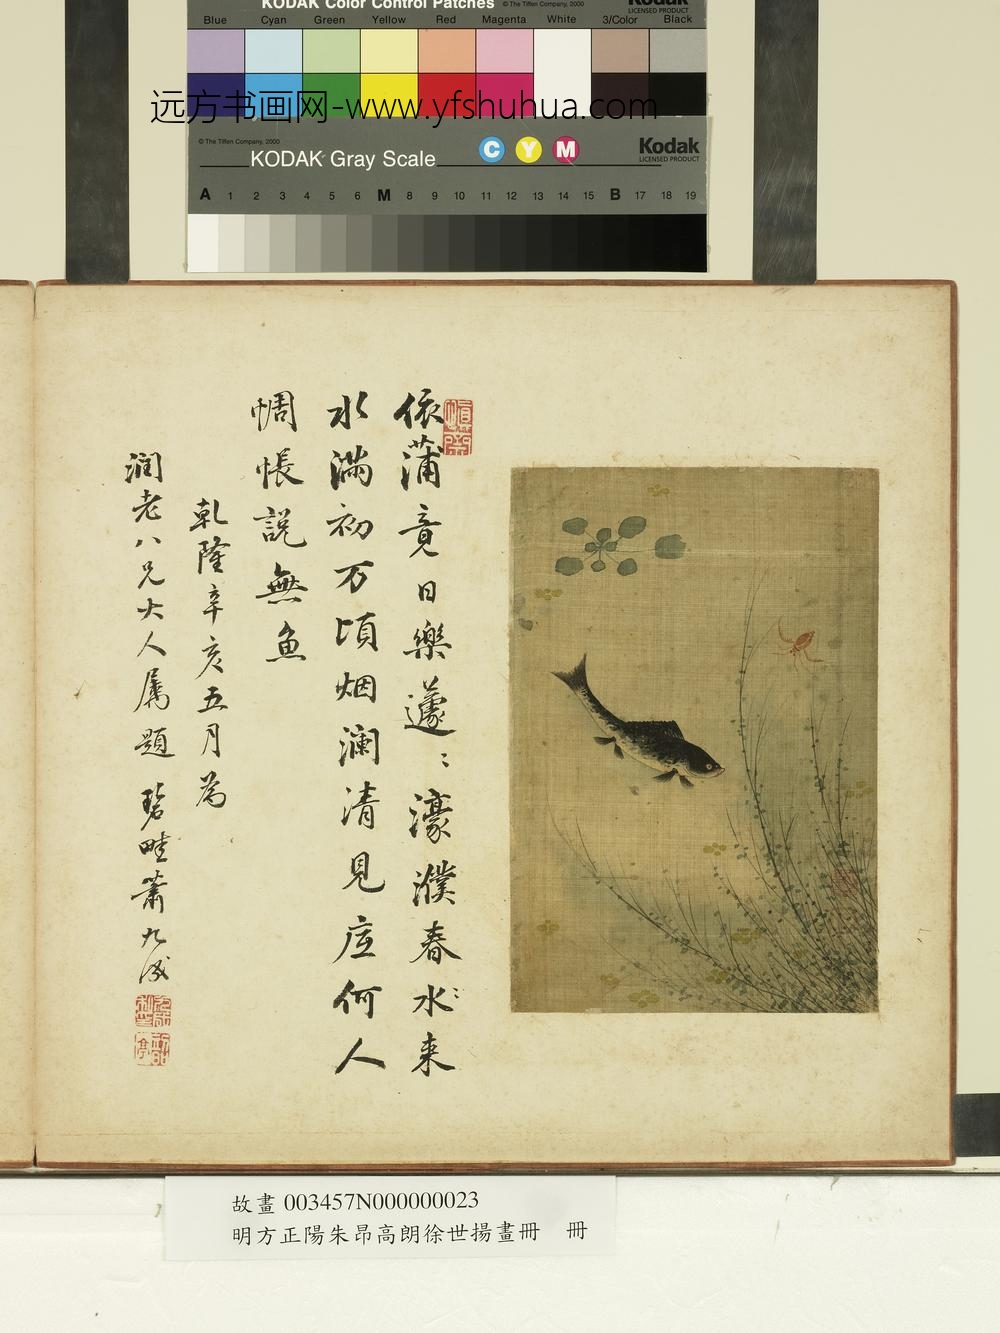 KODAK Color Control Patches
© The Tiffen Company, 2000
Kodak
LICENSED PRODUCT
Blue Cyan Green Yellow Red Magenta White 3/Color Black
远方书画网-www.yfshuhua.com
© The Tiffen Company, 2000
KODAK Gray Scale
C Y M
Kodak
LICENSED PRODUCT
A 1 2 3 4 5 6 M 8 9 10 11 12 13 14 15 B 17 18 19
依蒲竟日樂蘧〻濠濮春水〻来
水滿初万頃烟澜清見底何人
惆悵說無魚
乾隆辛亥五月為
润老八兄大人属題 碧畦蕭九成
故畫 003457N000000023
明方正陽朱昂高朗徐世揚畫冊 冊